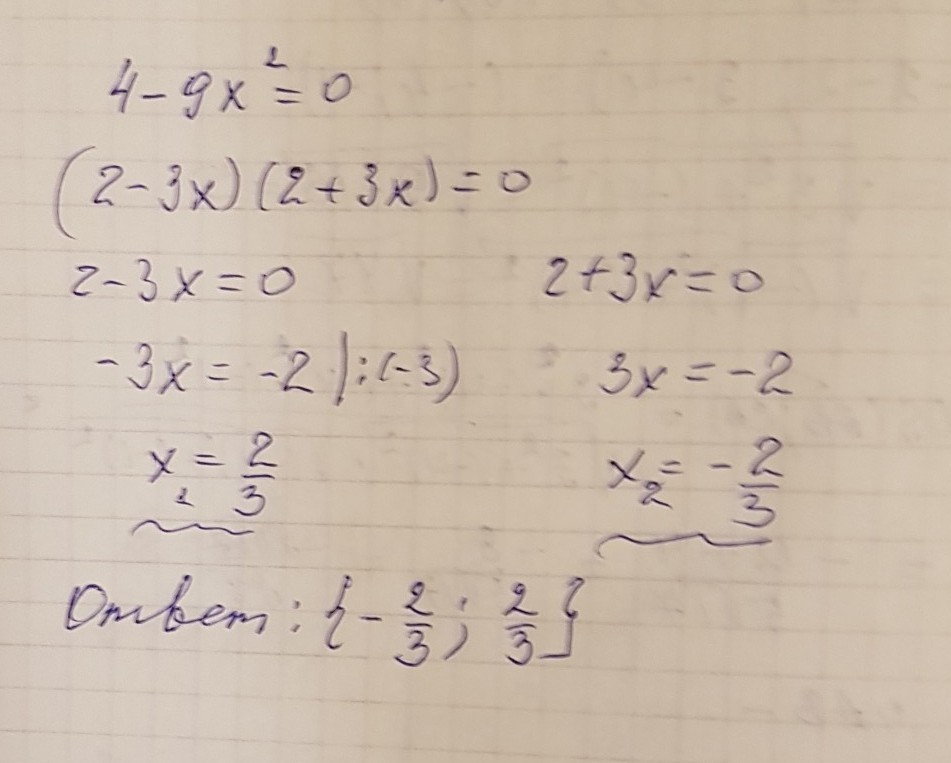 4 - 9x² = 0
(2 - 3x)(2 + 3x) = 0
2 - 3x = 0 2 + 3x = 0
-3x = -2 | : (-3) 3x = -2
x₁ = 2/3 x₂ = -2/3
Ответ: {-2/3; 2/3}